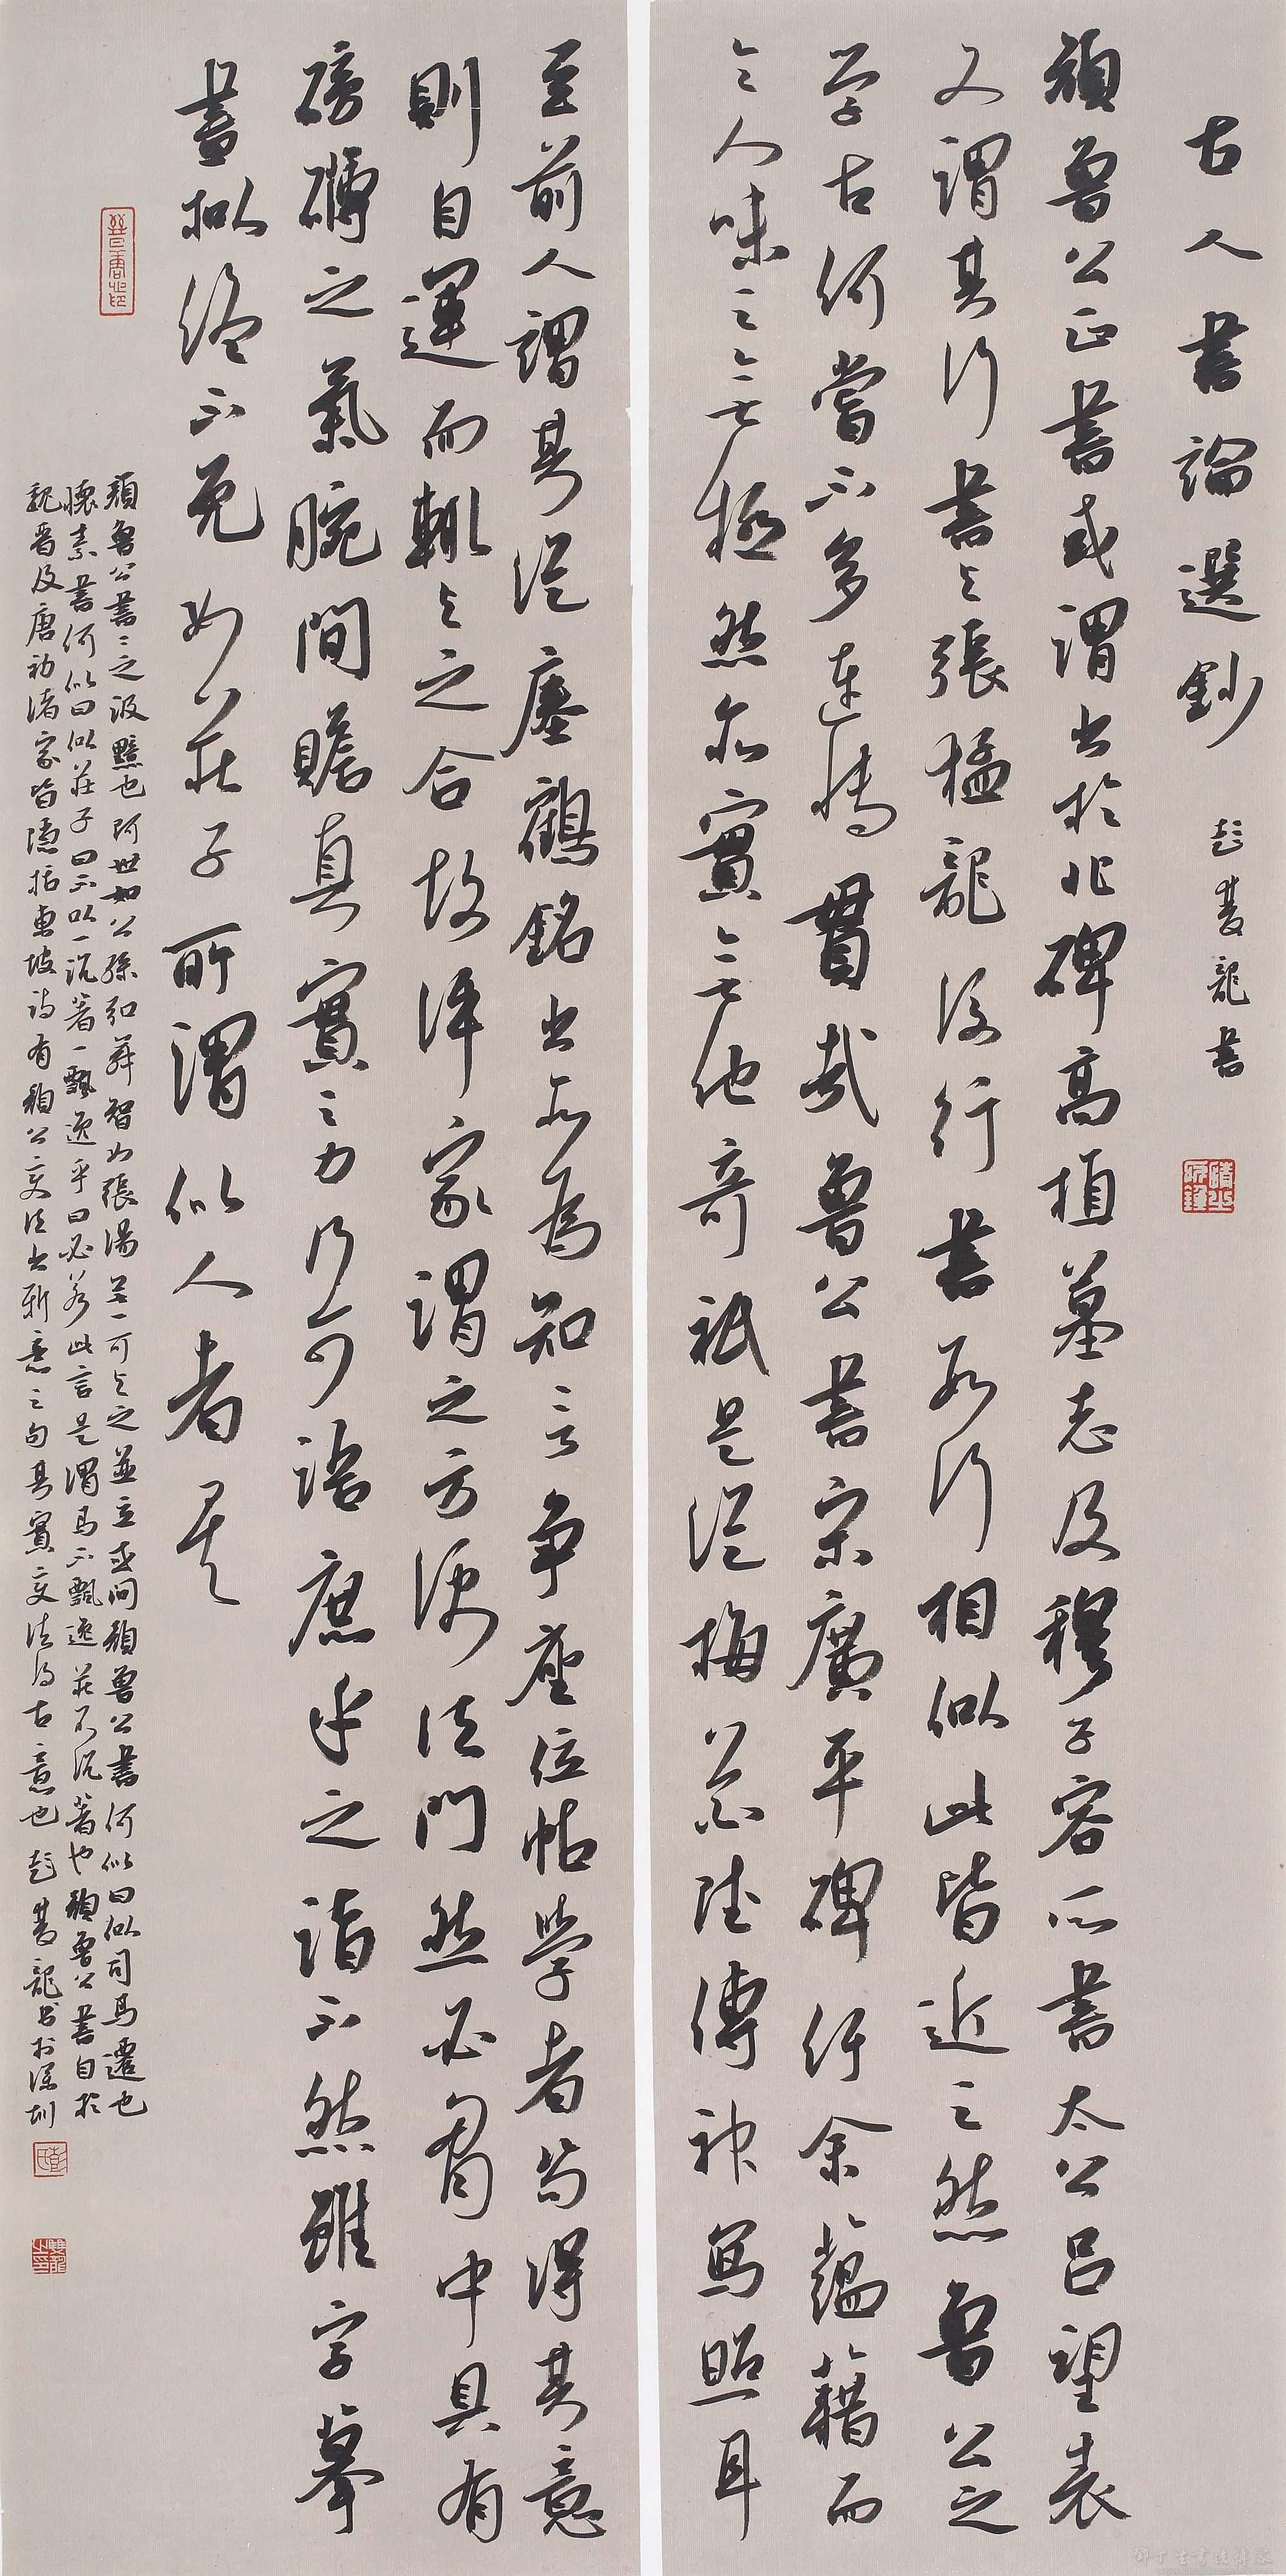 古人書論選鈔 彭雙龍書
顏魯公正書或謂出於北碑高植墓志及穆子容所書太公呂望表
又謂其行書與張猛龍後行書數行相似此皆近之然魯公之
學古何嘗不多連博貫哉魯公書宋廣平碑行余蘊藉而
令人味之無極然亦實無他奇祇是從梅花賦傳神寫照耳
至前人謂其從瘞鶴銘出亦為知言爭座位帖學者苟得其意
則自運而輒與之合故評家謂之方便法門然必胸中具有
磅礴之氣腕間贍真實之力乃可語庶乎之詣不然雖字摹
畫擬終不免如莊子所謂似人者矣
顏魯公書書之汲黯也阿世如公孫弘舞智如張湯無一可與之並立或問顏魯公書何似曰似司馬遷也
懷素書何似曰似莊子曰不以一沉著一飄逸乎曰必若此言是謂馬不飄逸莊不沉著也顏魯公書自於
魏晉及唐初諸家皆隱括東坡詩有顏公變法出新意之句其實變法得古意也 彭雙龍書於深圳